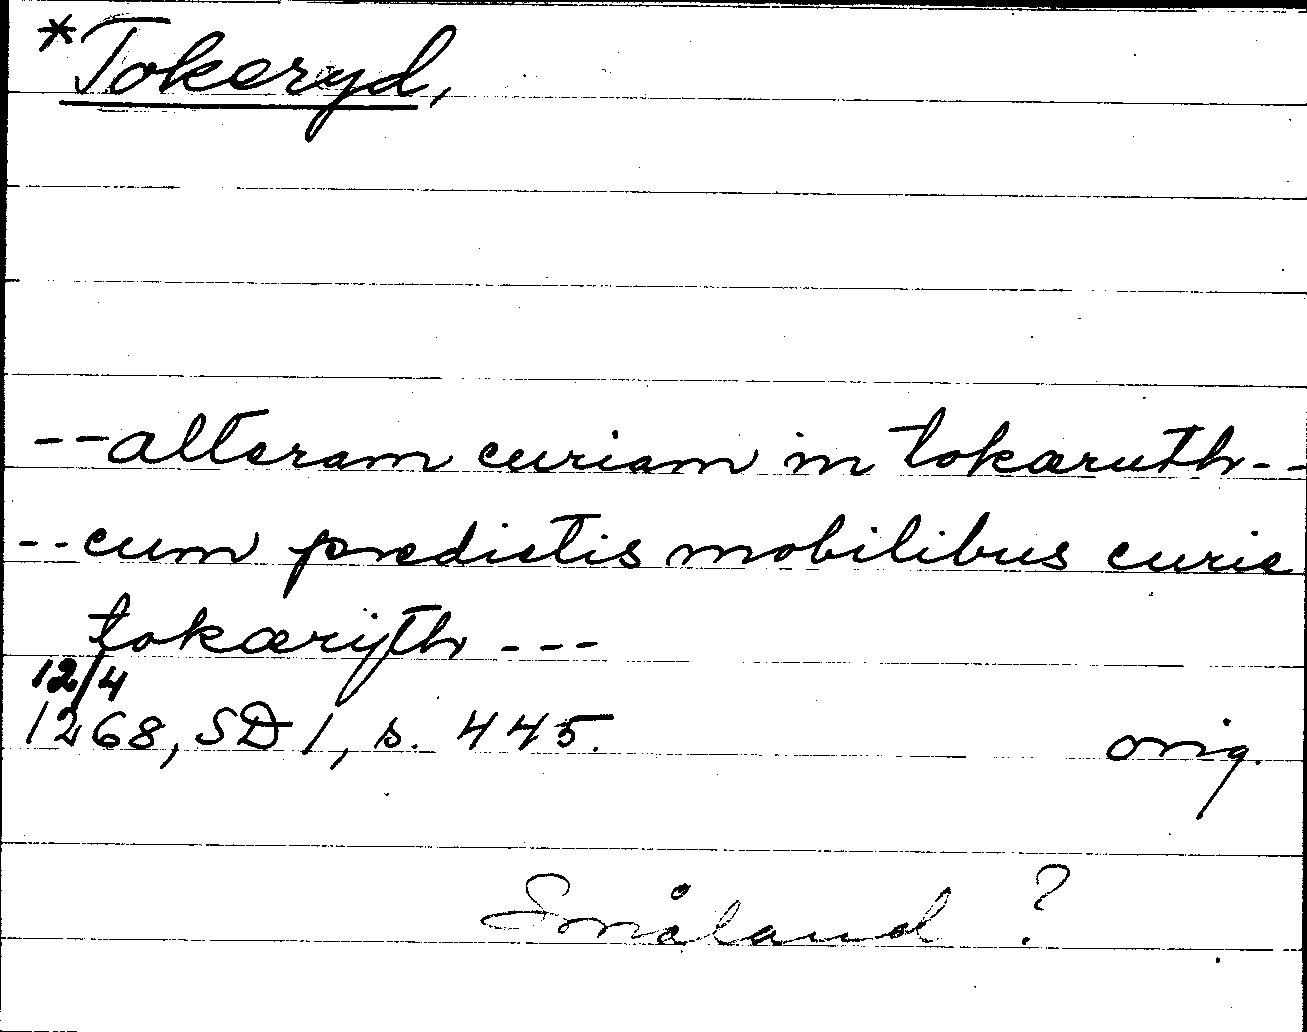 *Tokeryd,
--alteram curiam in tokæruth--
--cum predictis mobilibus curie
tokæryth---
12/4
1268, SD 1, s. 445. orig.
Småland ?